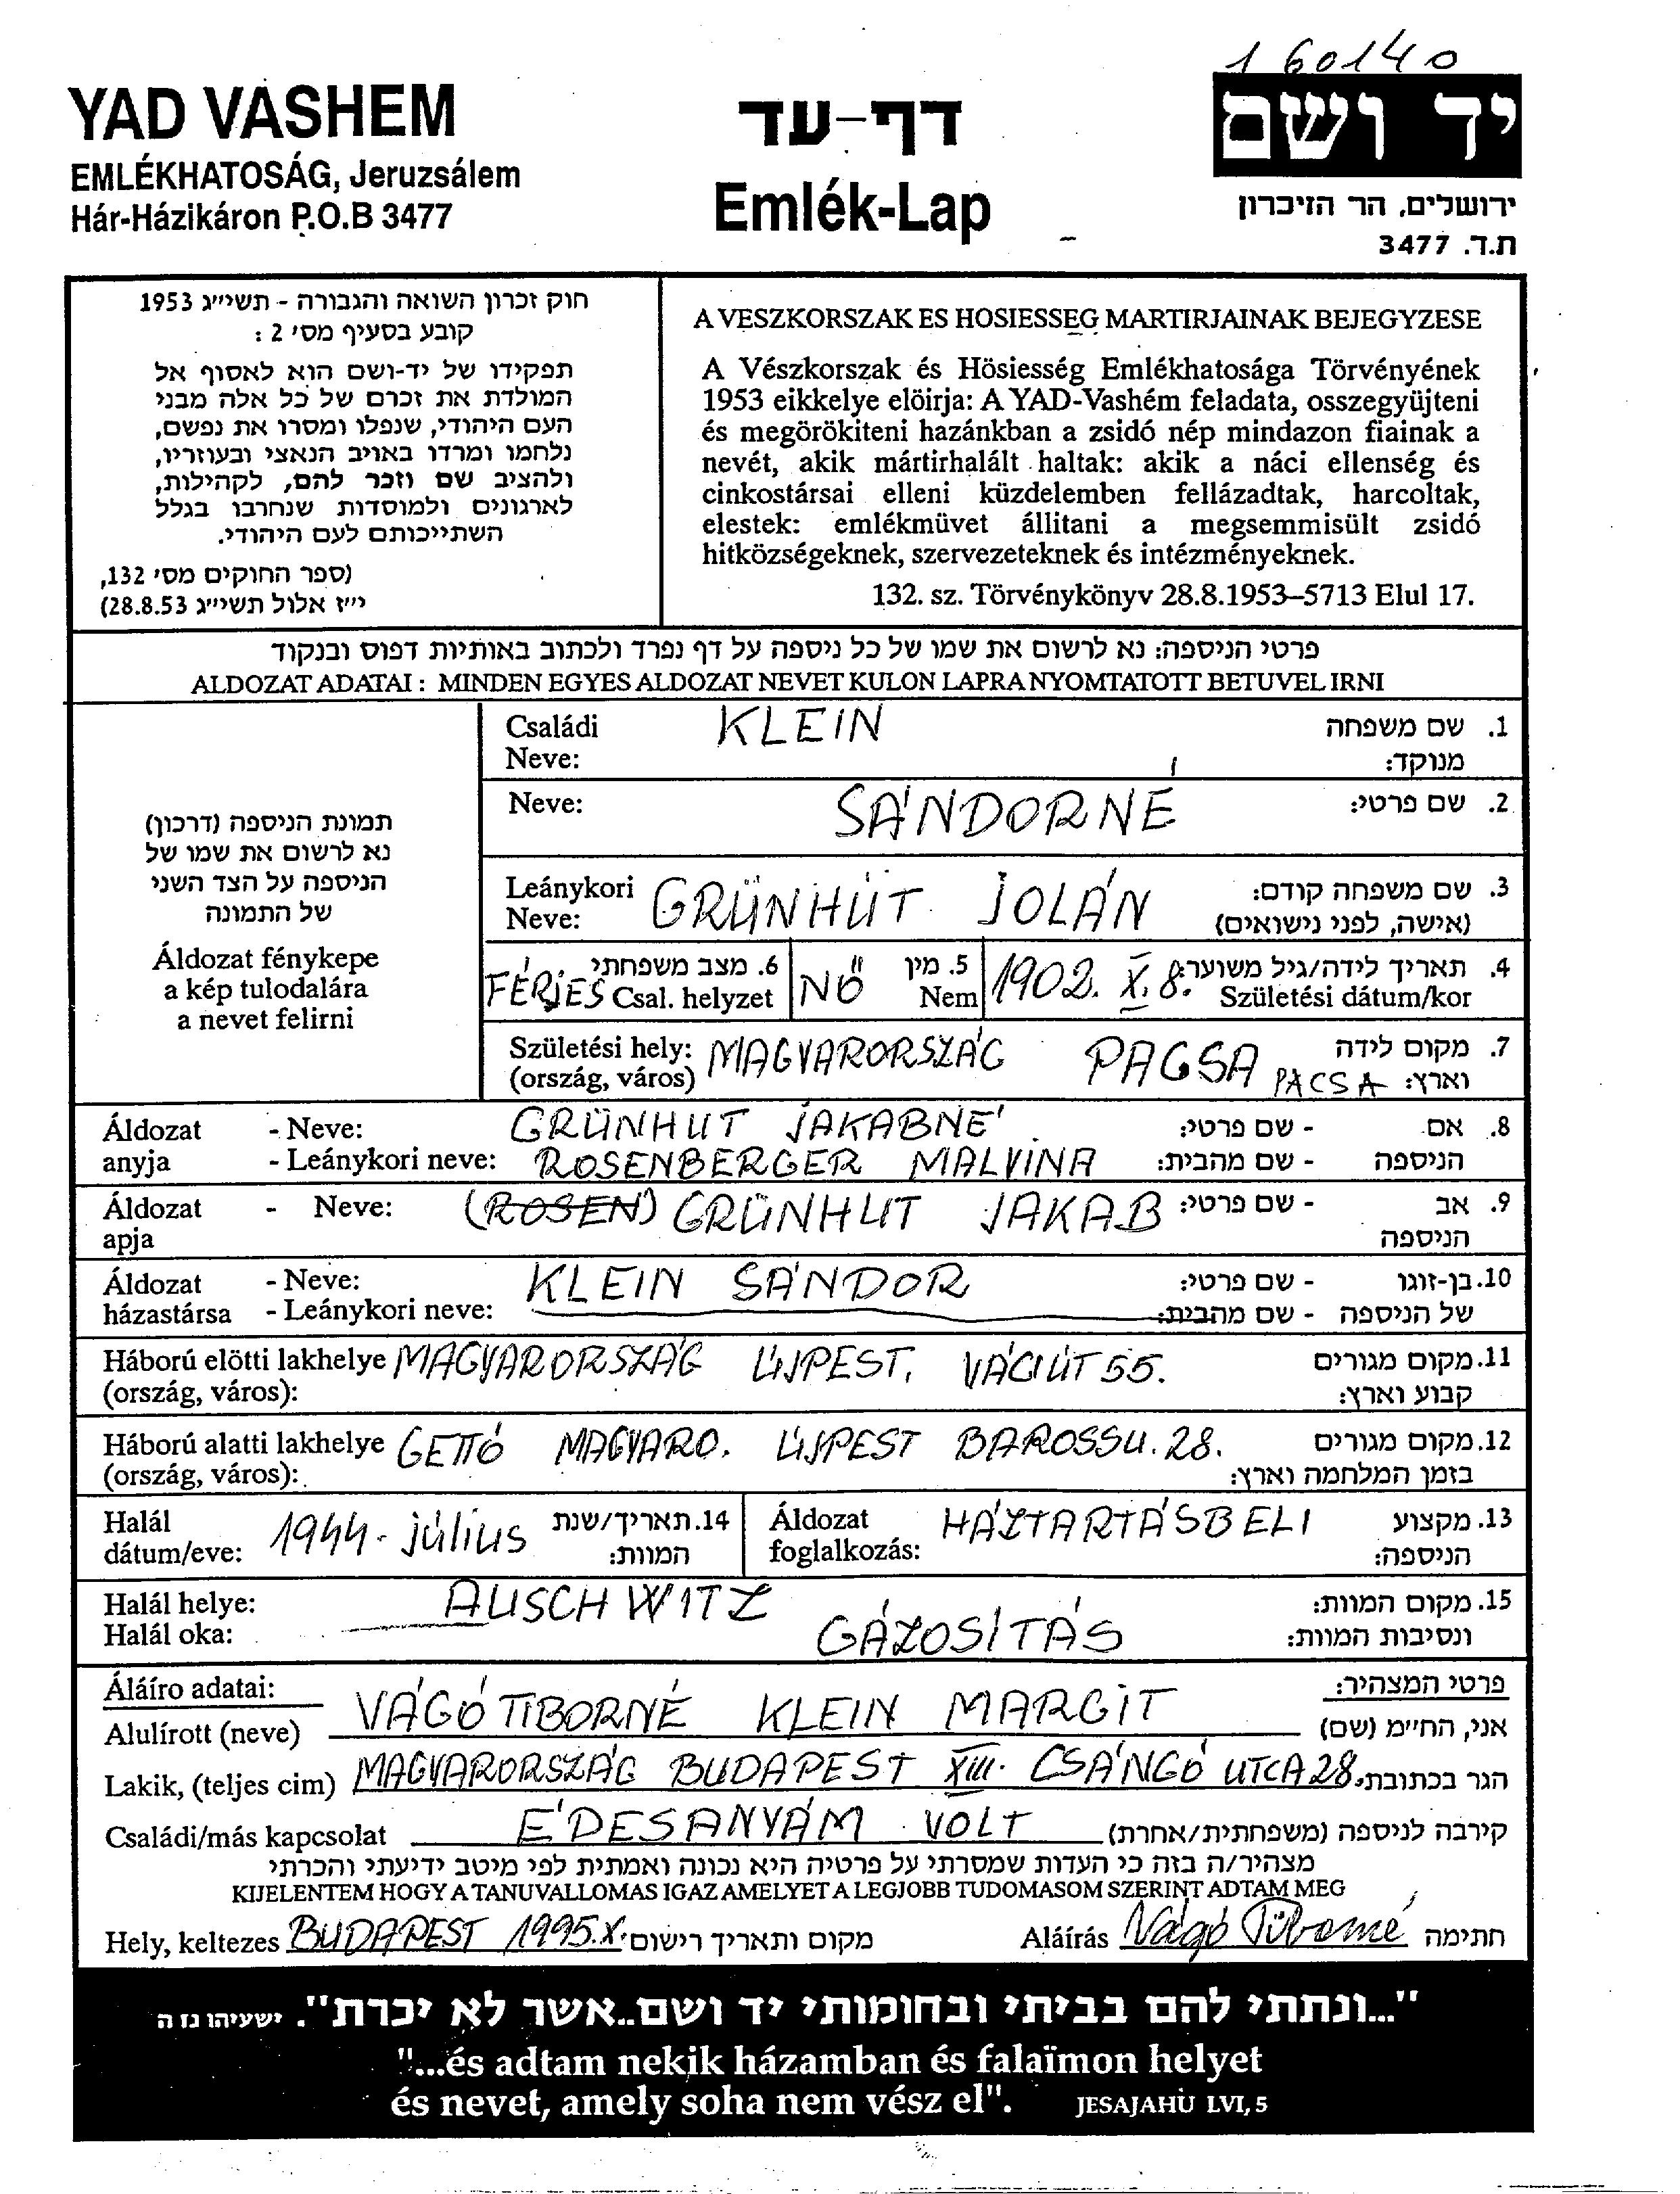 160140
YAD VASHEM
EMLÉKHATOSÁG, Jeruzsálem
Hár-Házikáron P.O.B 3477
דף-עד
Emlék-Lap
יד ושם
ירושלים, הר הזיכרון
ת.ד. 3477
חוק זכרון השואה והגבורה - תשי״ג 1953
קובע בסעיף מס׳ 2 :
תפקידו של יד-ושם הוא לאסוף אל
המולדת את זכרם של כל אלה מבני
העם היהודי, שנפלו ומסרו את נפשם,
נלחמו ומרדו באויב הנאצי ובעוזריו,
ולהציב שם וזכר להם, לקהילות,
לארגונים ולמוסדות שנחרבו בגלל
השתייכותם לעם היהודי.
(ספר החוקים מס׳ 132,
י״ז אלול תשי״ג 28.8.53)
A VESZKORSZAK ES HOSIESSEG MARTIRJAINAK BEJEGYZESE
A Vészkorszak és Hösiesség Emlékhatosága Törvényének
1953 eikkelye elöirja: A YAD-Vashém feladata, osszegyüjteni
és megörökiteni hazánkban a zsidó nép mindazon fiainak a
nevét, akik mártirhalált haltak: akik a náci ellenség és
cinkostársai elleni küzdelemben fellázadtak, harcoltak,
elestek: emlékmüvet állitani a megsemmisült zsidó
hitközségeknek, szervezeteknek és intézményeknek.
132. sz. Törvénykönyv 28.8.1953–5713 Elul 17.
פרטי הניספה: נא לרשום את שמו של כל ניספה על דף נפרד ולכתוב באותיות דפוס ובנקוד
ALDOZAT ADATAI : MINDEN EGYES ALDOZAT NEVET KULON LAPRA NYOMTATOTT BETUVEL IRNI
תמונת הניספה (דרכון)
נא לרשום את שמו של
הניספה על הצד השני
של התמונה
Áldozat fénykepe
a kép tulodalára
a nevet felirni
Családi KLEIN 1. שם משפחה
Neve: מנוקד:
Neve: SÁNDORNÉ 2. שם פרטי:
Leánykori GRÜNHUT JOLÁN 3. שם משפחה קודם:
Neve: (אישה, לפני נישואים)
FÉRJES 6. מצב משפחתי NŐ 5. מין 1902. X. 8. 4. תאריך לידה/גיל משוער:
Csal. helyzet Nem Születési dátum/kor
Születési hely: MAGYARORSZÁG PAGSA 7. מקום לידה
(ország, város) PACSA וארץ:
Áldozat - Neve: GRÜNHUT JAKABNÉ - שם פרטי: 8. אם
anyja - Leánykori neve: ROSENBERGER MALVINA - שם מהבית: הניספה
Áldozat - Neve: (ROSEN) GRÜNHUT JAKAB - שם פרטי: 9. אב
apja הניספה
Áldozat - Neve: KLEIN SÁNDOR - שם פרטי: 10. בן-זוגו
házastársa - Leánykori neve: - שם מהבית: של הניספה
Háború elötti lakhelye MAGYARORSZÁG ÚJPEST, VÁCI ÚT 55. 11. מקום מגורים
(ország, város): קבוע וארץ:
Háború alatti lakhelye GETTÓ MAGYARO. ÚJPEST BAROSS U. 28. 12. מקום מגורים
(ország, város): בזמן המלחמה וארץ:
Halál 1944. július 14. תאריך/שנת Áldozat HÁZTARTÁSBELI 13. מקצוע
dátum/eve: המוות: foglalkozás: הניספה:
Halál helye: AUSCHWITZ 15. מקום המוות:
Halál oka: GÁZOSÍTÁS ונסיבות המוות:
Áláíro adatai: פרטי המצהיר:
Alulírott (neve) VÁGÓ TIBORNÉ KLEIN MARGIT אני, החי״מ (שם)
Lakik, (teljes cim) MAGYARORSZÁG BUDAPEST XIII. CSÁNGÓ UTCA 28. הגר בכתובת
Családi/más kapcsolat ÉDESANYÁM VOLT קירבה לניספה (משפחתית/אחרת)
מצהיר/ה בזה כי העדות שמסרתי על פרטיה היא נכונה ואמתית לפי מיטב ידיעתי והכרתי
KIJELENTEM HOGY A TANUVALLOMAS IGAZ AMELYET A LEGJOBB TUDOMASOM SZERINT ADTAM MEG
Hely, keltezes BUDAPEST 1995.X. מקום ותאריך רישום Aláírás Vágó Tiborné חתימה
"...ונתתי להם בביתי ובחומותי יד ושם..אשר לא יכרת". ישעיהו נז ה
"...és adtam nekik házamban és falaïmon helyet
és nevet, amely soha nem vész el". JESAJAHÙ LVI, 5